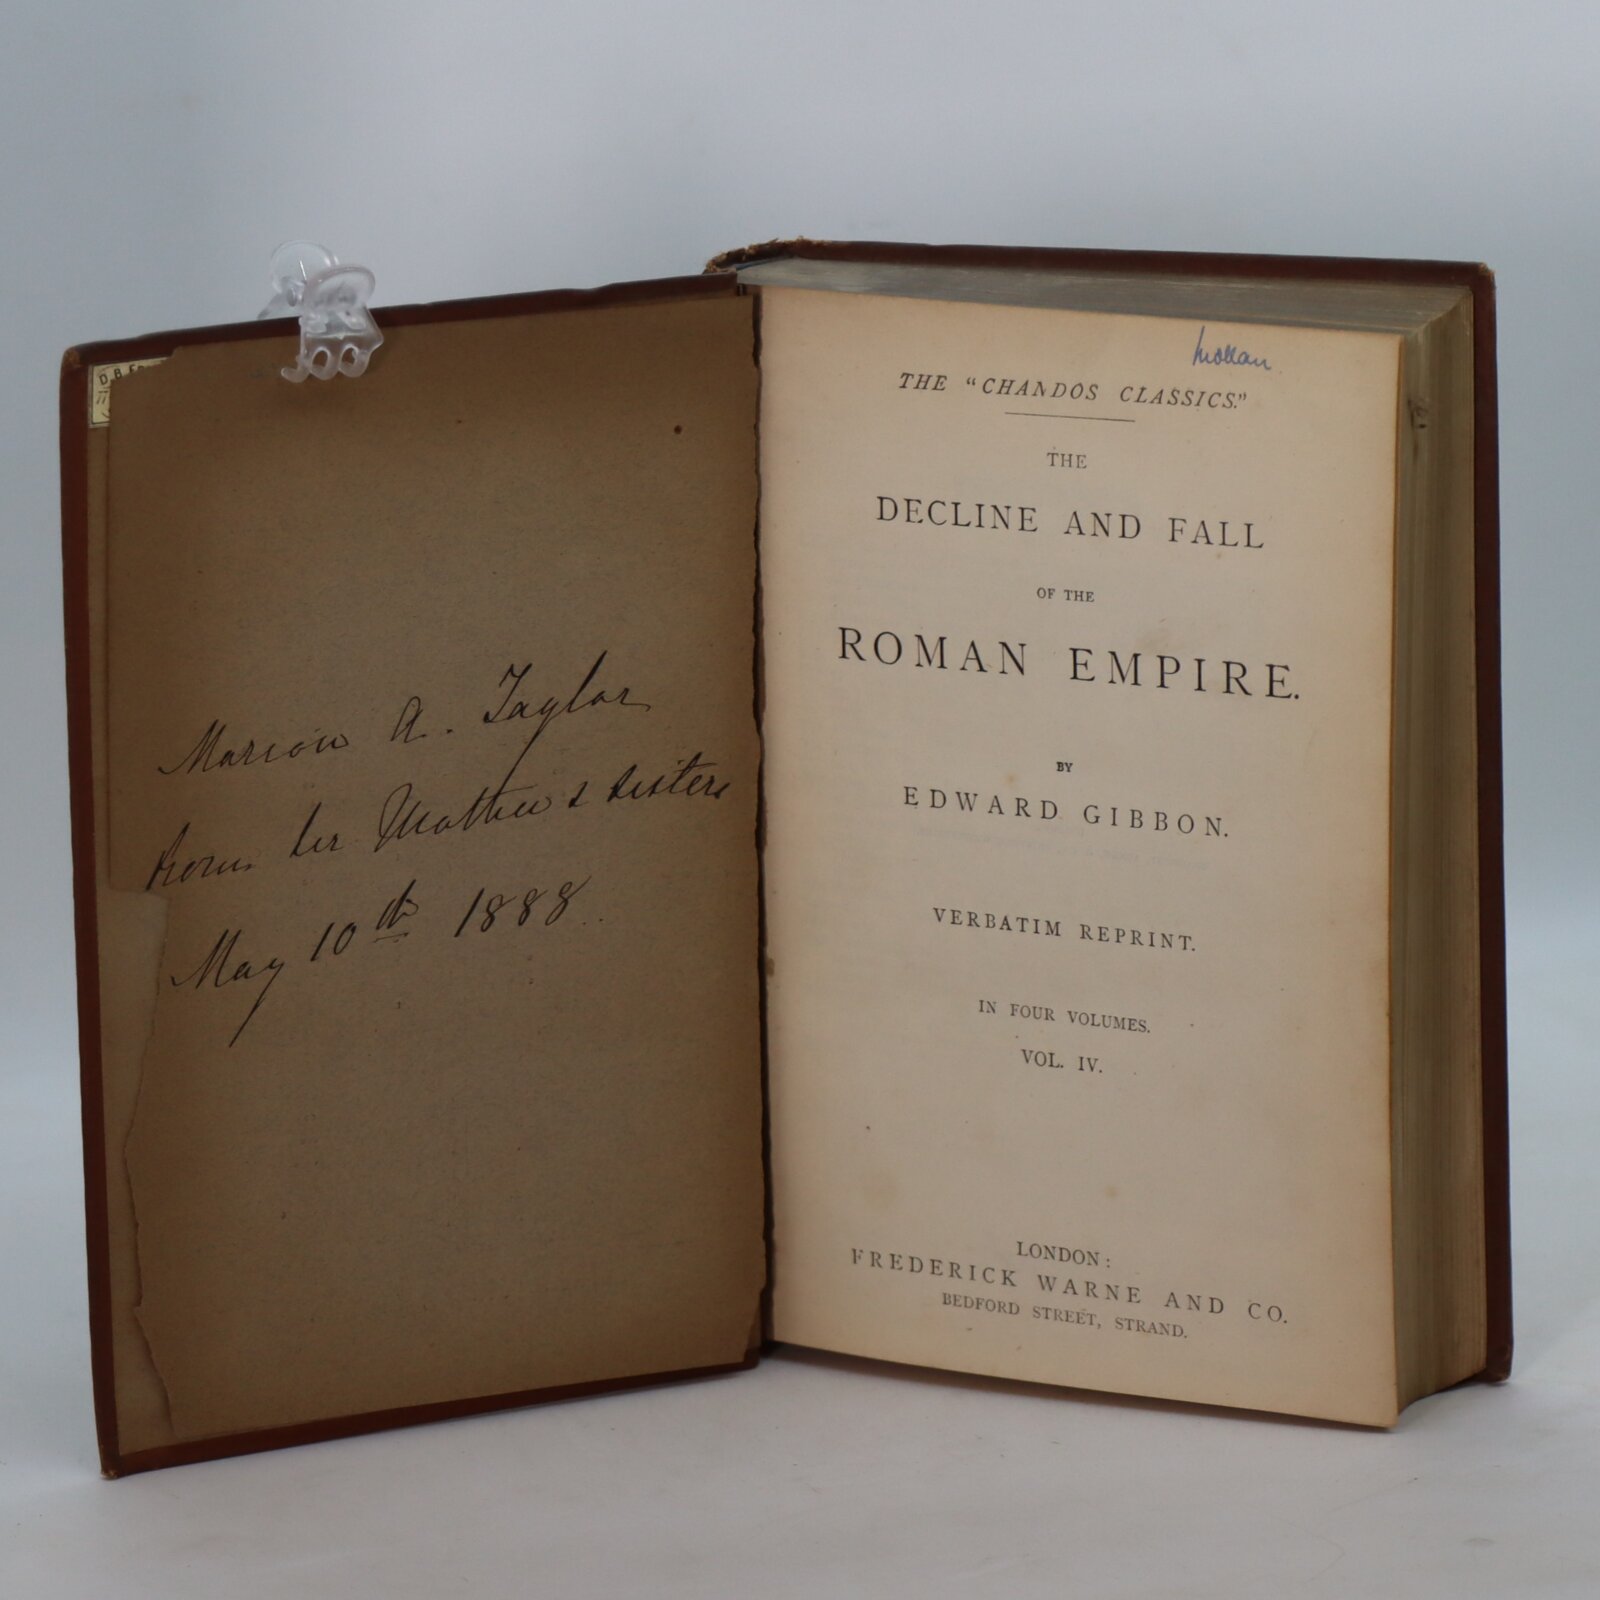 D. B. F
Marion A. Taylor
from her Mother & sisters
May 10th 1888.
Mollan
THE "CHANDOS CLASSICS."
THE
DECLINE AND FALL
OF THE
ROMAN EMPIRE.
BY
EDWARD GIBBON.
VERBATIM REPRINT.
IN FOUR VOLUMES.
VOL. IV.
LONDON:
FREDERICK WARNE AND CO.
BEDFORD STREET, STRAND.